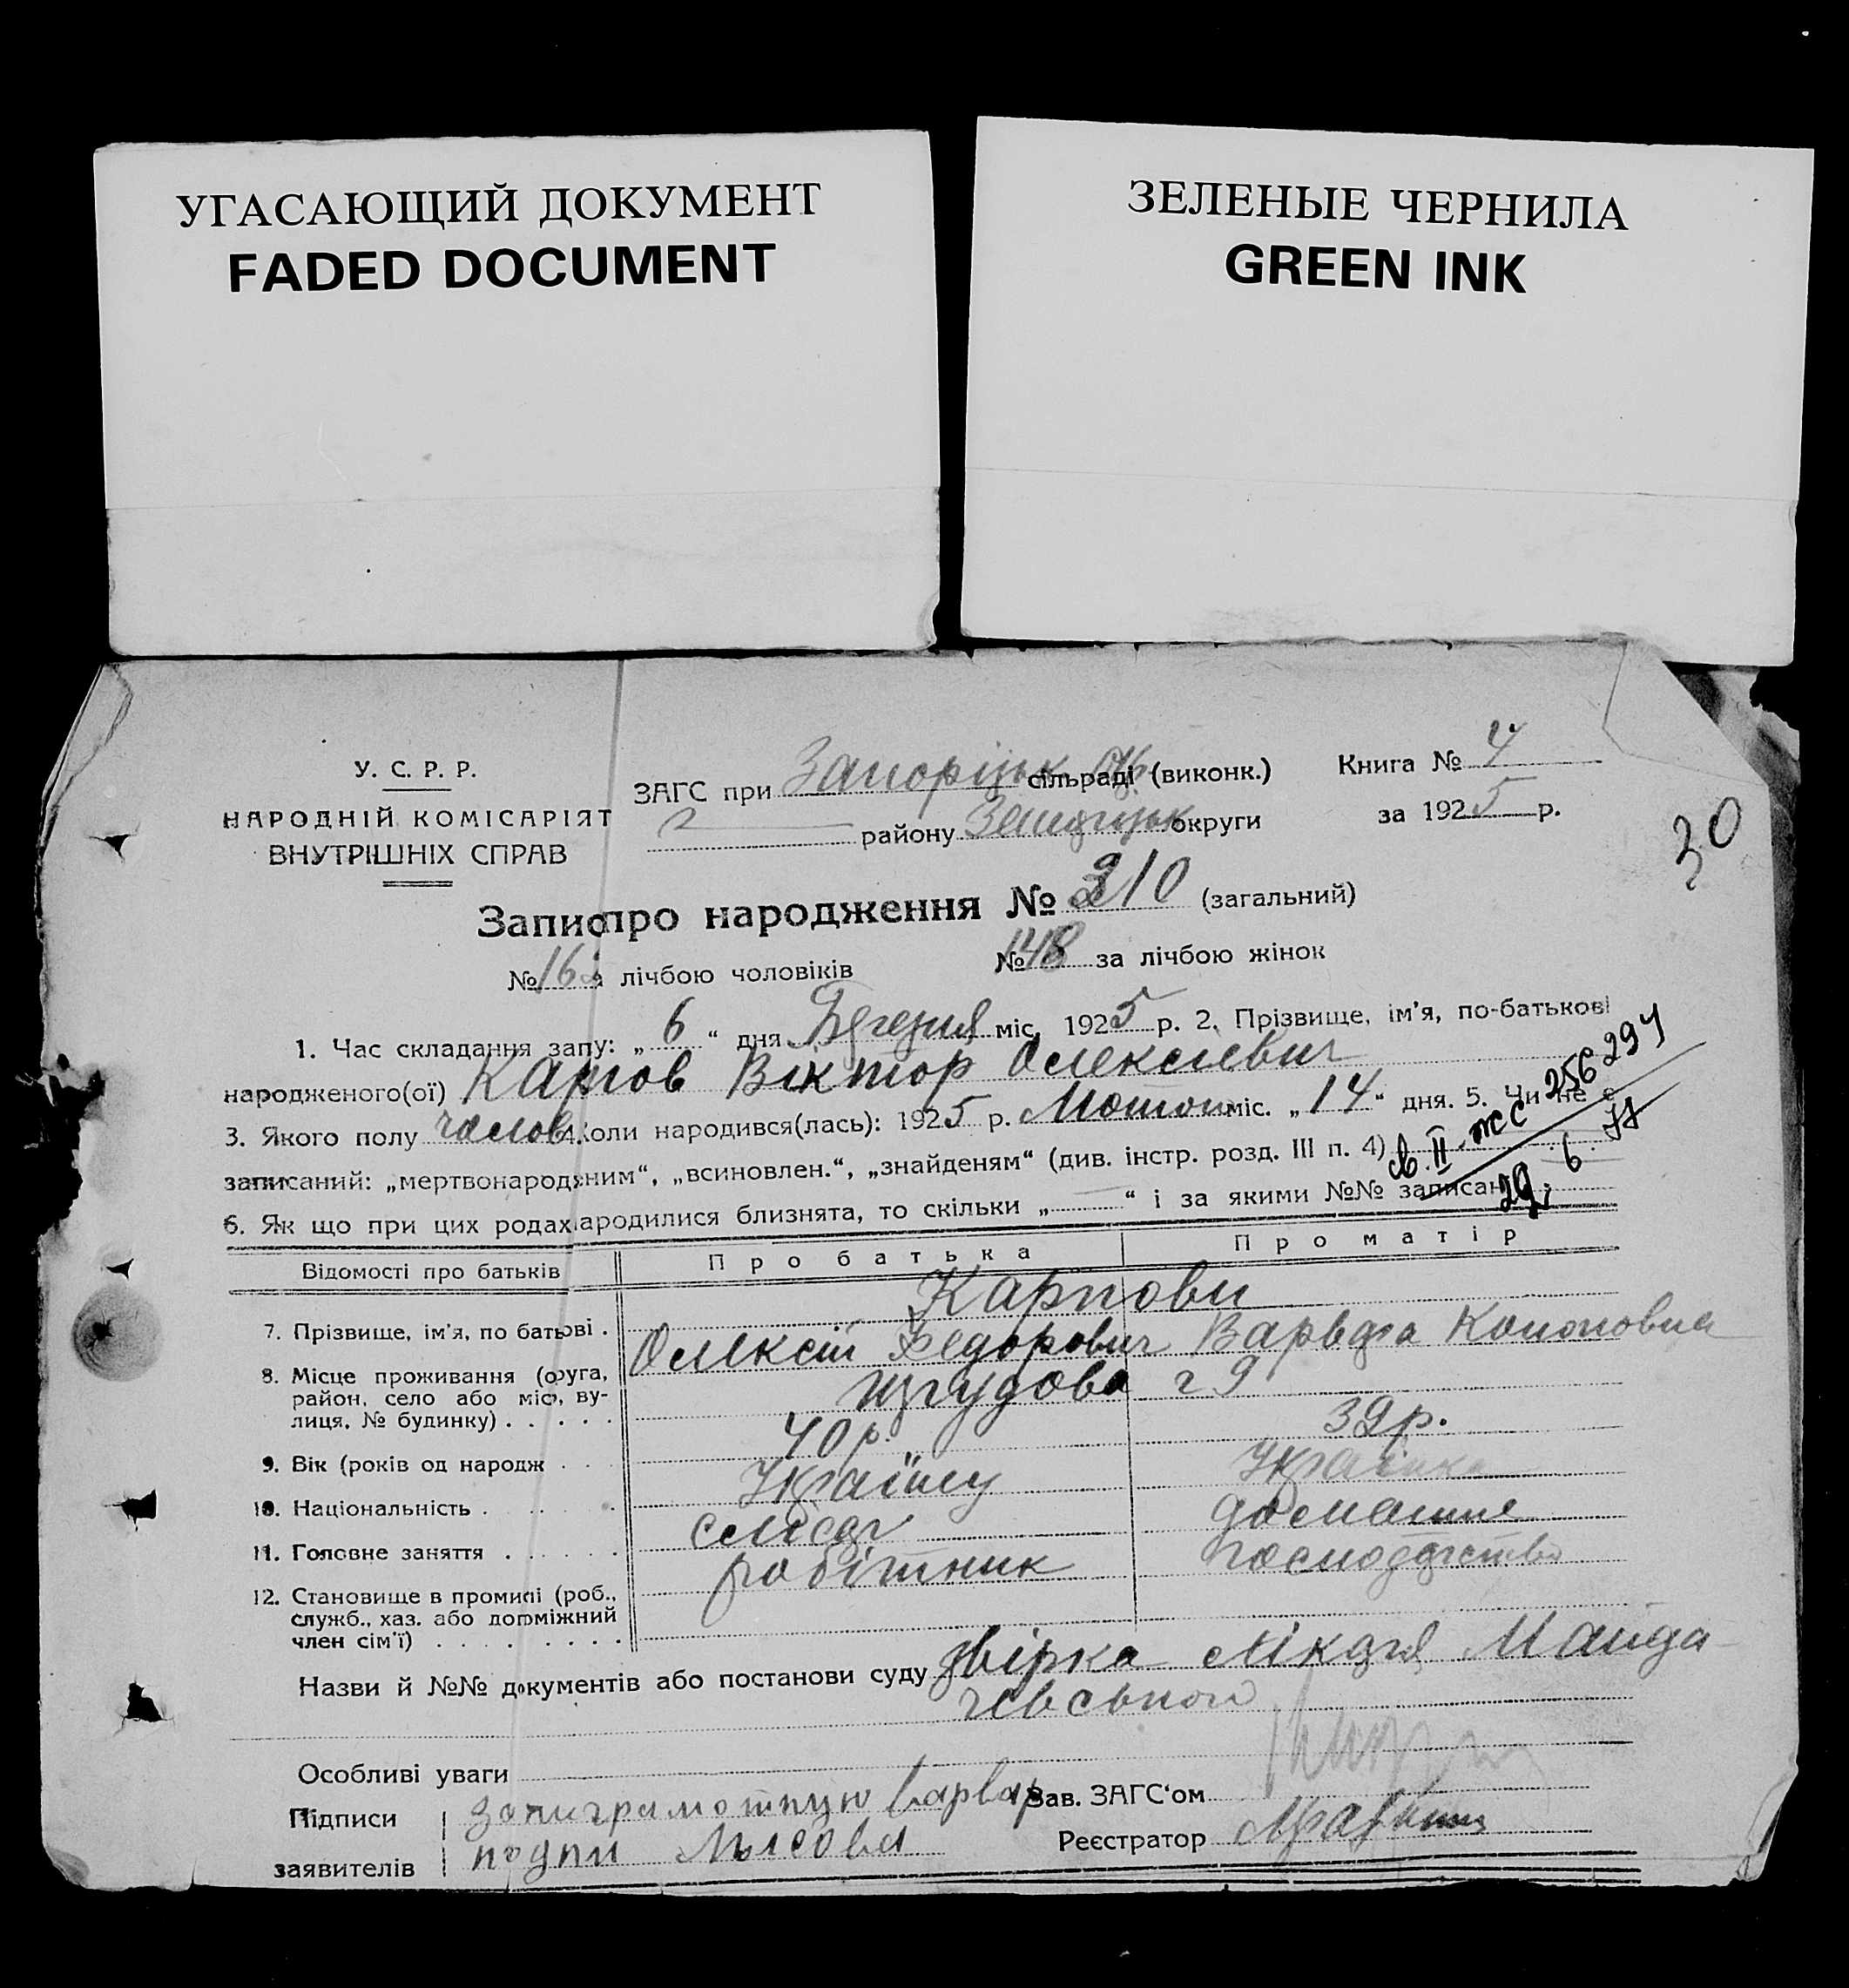 УГАСАЮЩИЙ ДОКУМЕНТ
FADED DOCUMENT
ЗЕЛЕНЫЕ ЧЕРНИЛА
GREEN INK
У. С. Р. Р.
НАРОДНІЙ КОМІСАРІЯТ
ВНУТРІШНІХ СПРАВ
ЗАГС при Запоріцьк сільраді (виконк.)
району округи
Книга № 4
за 1925 р.
30
Запис про народження № 310 (загальний)
№ 16 лічбою чоловіків № 148 за лічбою жінок
1. Час складання запу: „ 6 “ дня Березня міс. 1925 р. 2. Прізвище, ім'я, по-батькові
народженого(ої) Карпов Віктор Олексієвич
3. Якого полу чолов. 4. Коли народився(лась): 1925 р. Лютого міс. „ 14 “ дня. 5. Чи не є
записаний: „мертвонародженим“, „всиновлен.“, „знайденям“ (див. інстр. розд. III п. 4)
св. II жс 256294
29. 6.
6. Як що при цих родах народилися близнята, то скільки „ “ і за якими №№ записані
Відомості про батьків Про батька Про матір
Карпови
7. Прізвище, ім'я, по батькові . Олексій Федорович Варвара Кононовна
8. Місце проживання (округа, район, село або місто, вулиця, № будинку) . . . . .
9. Вік (років од народж . . . 40 р. 32 р.
10. Національність . Українец Українка
11. Головне заняття . . . . . слюсар домашнє
господарство
12. Становище в промислі (роб., служб., хаз. або допоміжний член сім'ї) . . . . . . . . робітник
Назви й №№ документів або постанови суду звірка лікаря
Особливі уваги
Підписи
заявителів
за неграмотную Варвар
подпи
Зав. ЗАГС'ом
Реєстратор